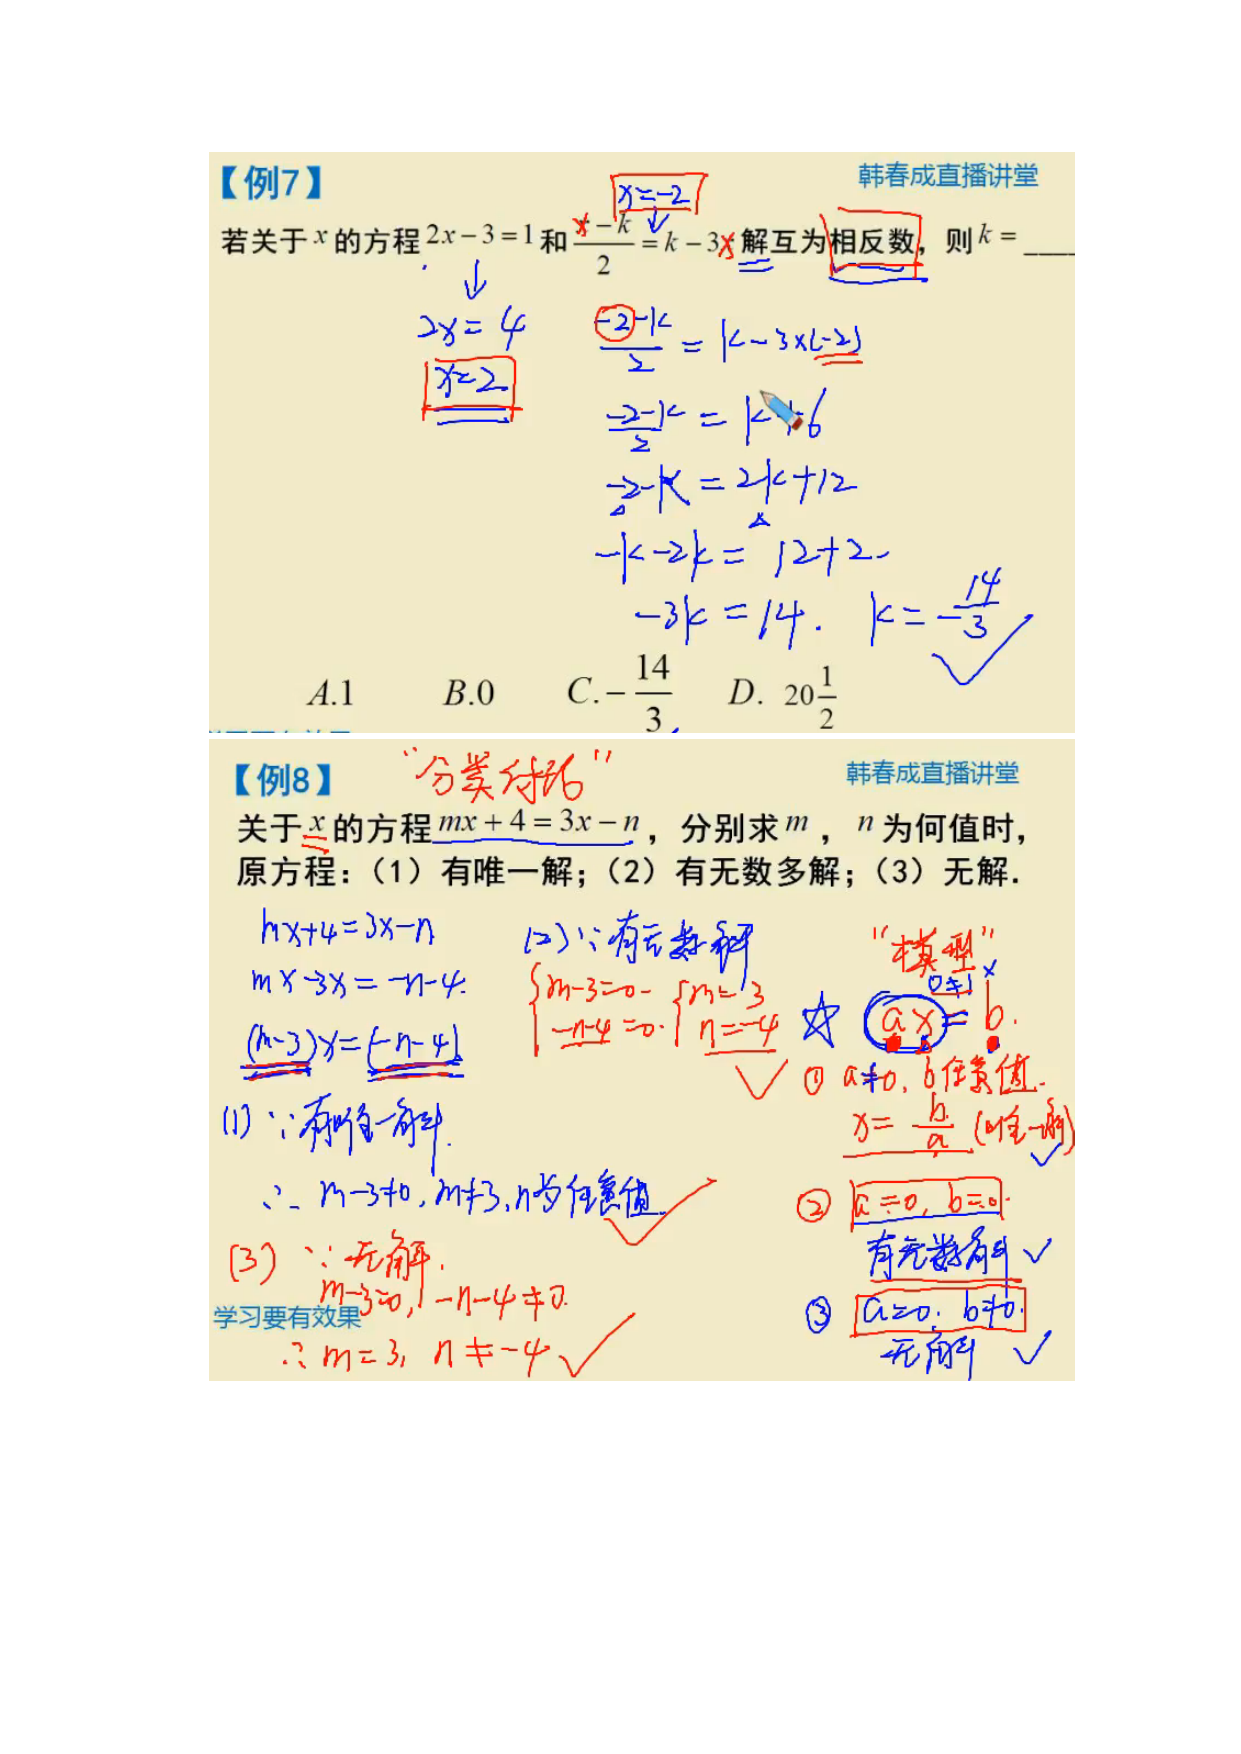 【例7】 韩春成直播讲堂
x=-2
若关于 x 的方程 2x-3=1 和 (x-k)/2 = k-3x 解互为相反数，则 k = ____
2x=4
x=2
(-2-k)/2 = k-3×(-2)
(-2-k)/2 = k+6
-2-k = 2k+12
-k-2k = 12+2
-3k=14. k=-14/3
A.1 B.0 C.-14/3 D. 20 1/2
【例8】 “分类讨论” 韩春成直播讲堂
关于 x 的方程 mx+4=3x-n ，分别求 m ， n 为何值时，
原方程：（1）有唯一解；（2）有无数多解；（3）无解．
mx+4=3x-n
mx-3x=-n-4.
(m-3)x=(-n-4).
(1) ∵有唯一解.
∴ m-3≠0, m≠3, n为任意值.
(2) ∵有无数解
m-3=0 m=3
-n-4=0. n=-4
(3) ∵无解.
m-3=0, -n-4≠0.
学习要有效果
∴ m=3, n≠-4
“模型”
0≠1 x
☆ ax=b.
① a≠0, b任意值.
x=b/a (唯一解)
② a=0, b=0.
有无数解
③ a=0. b≠0.
无解